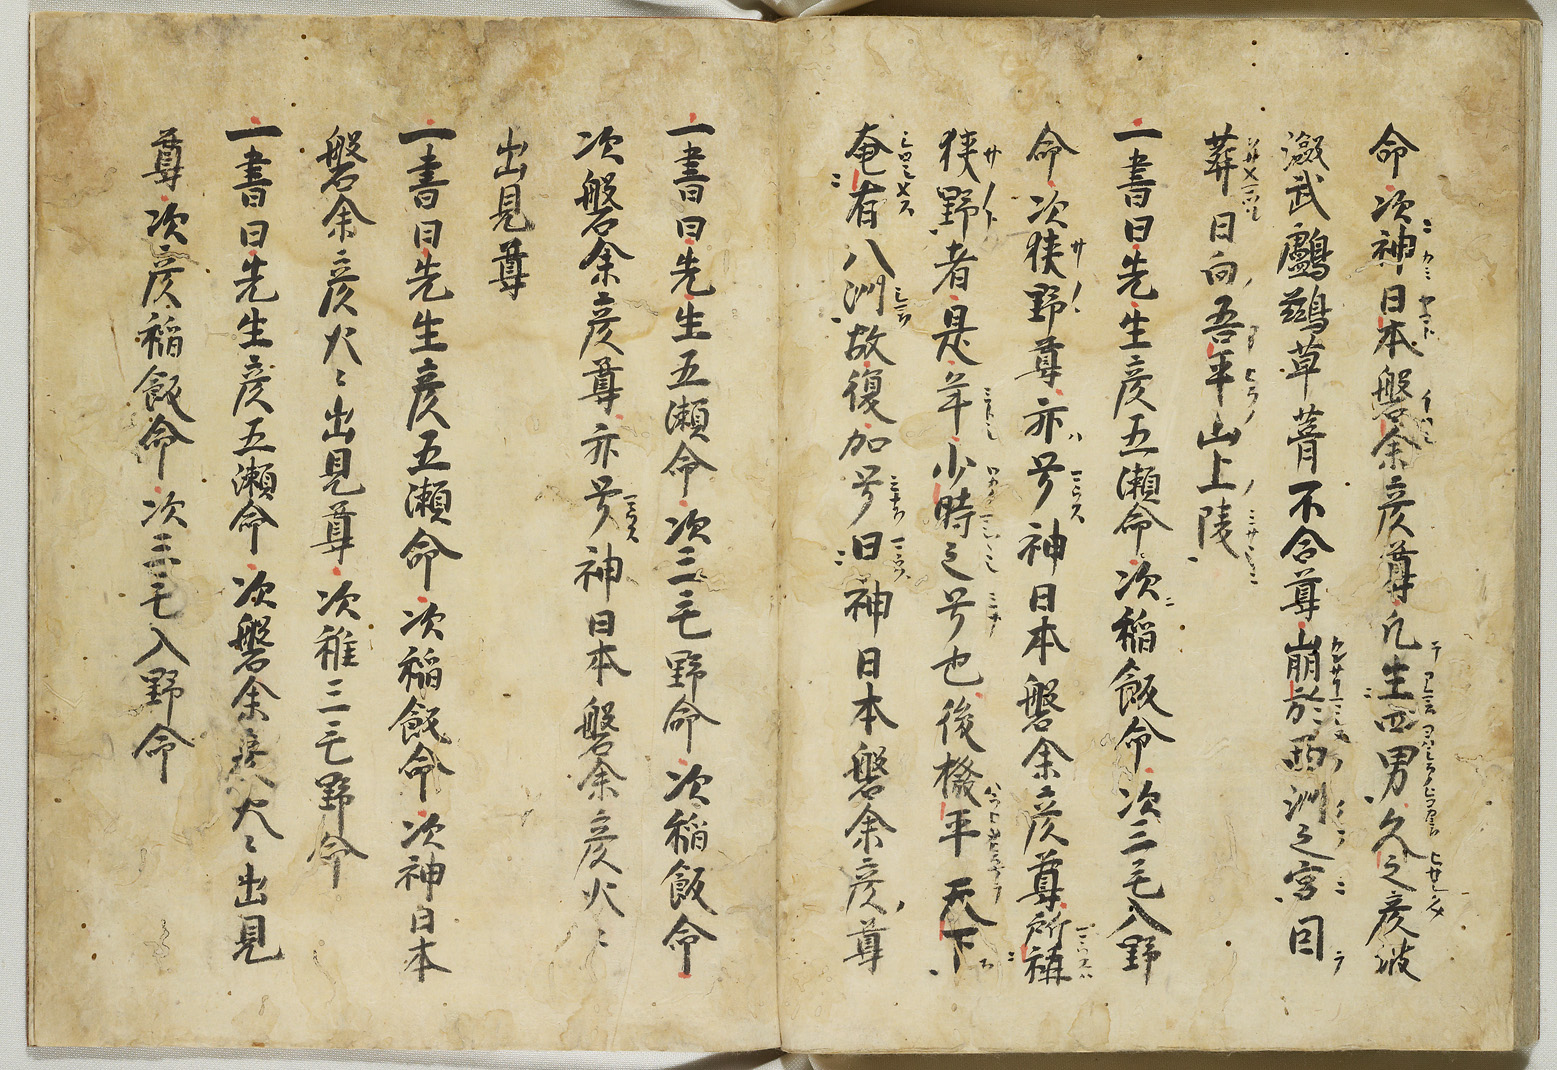 命次神日本磐余彦尊凡生四男久之彦波
瀲武鸕鶿草葺不合尊崩於西洲之宮因
葬日向吾平山上陵
一書曰先生彦五瀬命次稲飯命次三毛入野
命次狭野尊亦号神日本磐余彦尊所稱
狭野者是年少時之号也後撥平天下
奄有八洲故復加号曰神日本磐余彦尊
一書曰先生五瀬命次三毛野命次稲飯命
次磐余彦尊亦号神日本磐余彦火〻
出見尊
一書曰先生彦五瀬命次稲飯命次神日本
磐余彦火〻出見尊次稚三毛野命
一書曰先生彦五瀬命次磐余彦火〻出見
尊次彦稲飯命次三毛入野命